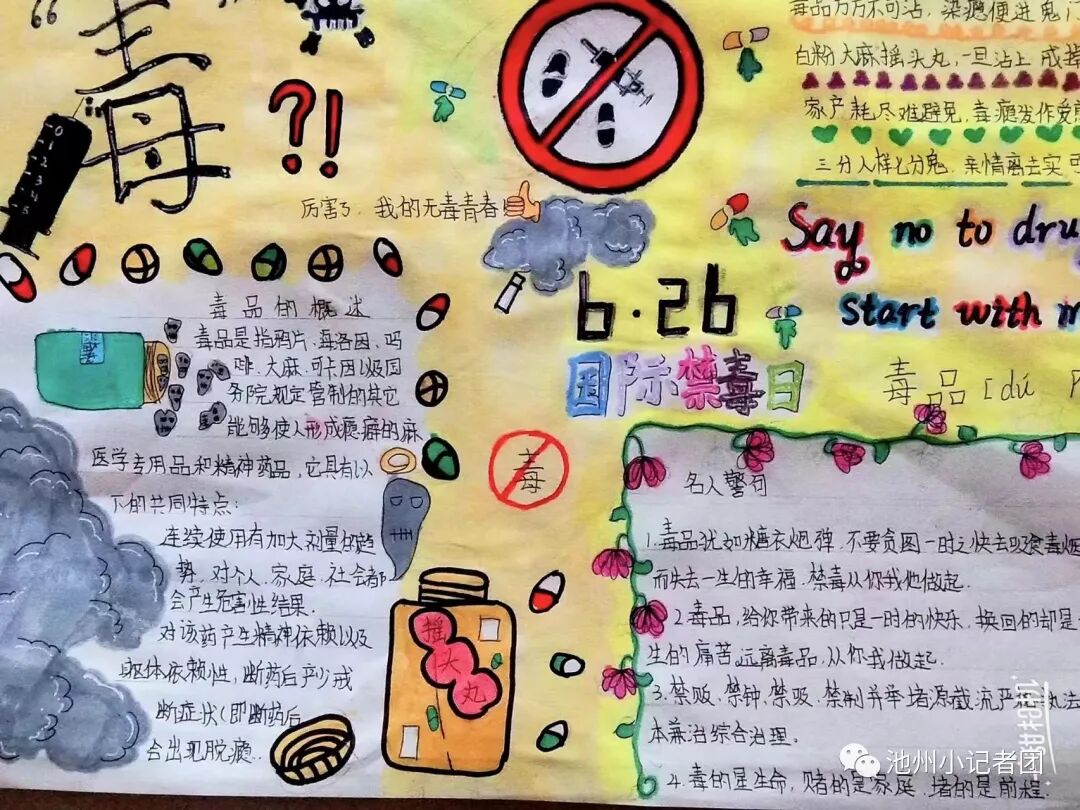 毒
?!
厉害了，我的无毒青春
毒品万万不可沾，染瘾便进鬼门
白粉大麻摇头丸，一旦沾上戒掉
家产耗尽难避免，毒瘾发作受
三分人样七分鬼，亲情离去实可
Say no to dru
start with m
6·26
国际禁毒日
毒品[dú
毒品的概述
毒品是指鸦片、毒洛因、吗
啡、大麻、可卡因以及国
务院规定管制的其它
能够使人形成瘾癖的麻
医学专用品和精神药品，它具有以
下的共同特点：
连续使用有加大剂量的趋
势，对个人、家庭、社会都
会产生危害性结果.
对该药产生精神依赖以及
躯体依赖性，断药后产生戒
断症状(即断药后
会出现脱瘾..
毒
摇
头
丸
名人警句
1.毒品犹如糖衣炮弹，不要贪图一时之快去吸食毒烟
而失去一生的幸福.禁毒从你我他做起.
2.毒品，给你带来的只是一时的快乐，换回的却是
生的痛苦远离毒品，从你我做起.
3.禁贩、禁钟、禁吸、禁制并举堵源截流严格执法
本兼治综合治理。
4.毒的是生命，赌的是家庭，堵的是前程.
池州小记者团